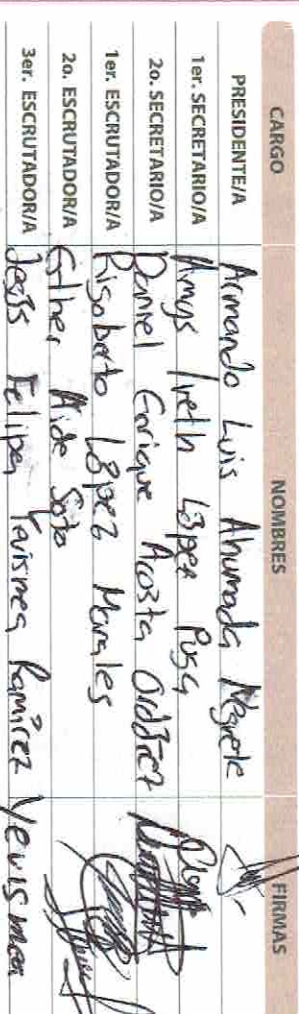 CARGO NOMBRES FIRMAS
PRESIDENTE/A Armando Luis Ahumada Negrete
1er. SECRETARIO/A Ireth López
2o. SECRETARIO/A Daniel Enrique Acosta Ordóñez
1er. ESCRUTADOR/A Rigoberto López Morales
2o. ESCRUTADOR/A Esther Aide Soto
3er. ESCRUTADOR/A Jesús Felipe Ramírez